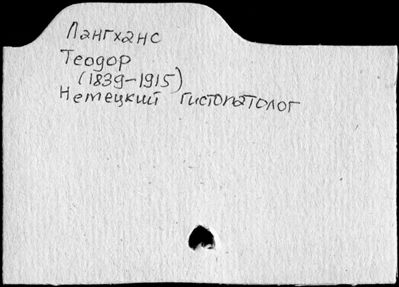 Лангханс
Теодор
(1839-1915)
Немецкий гистопатолог